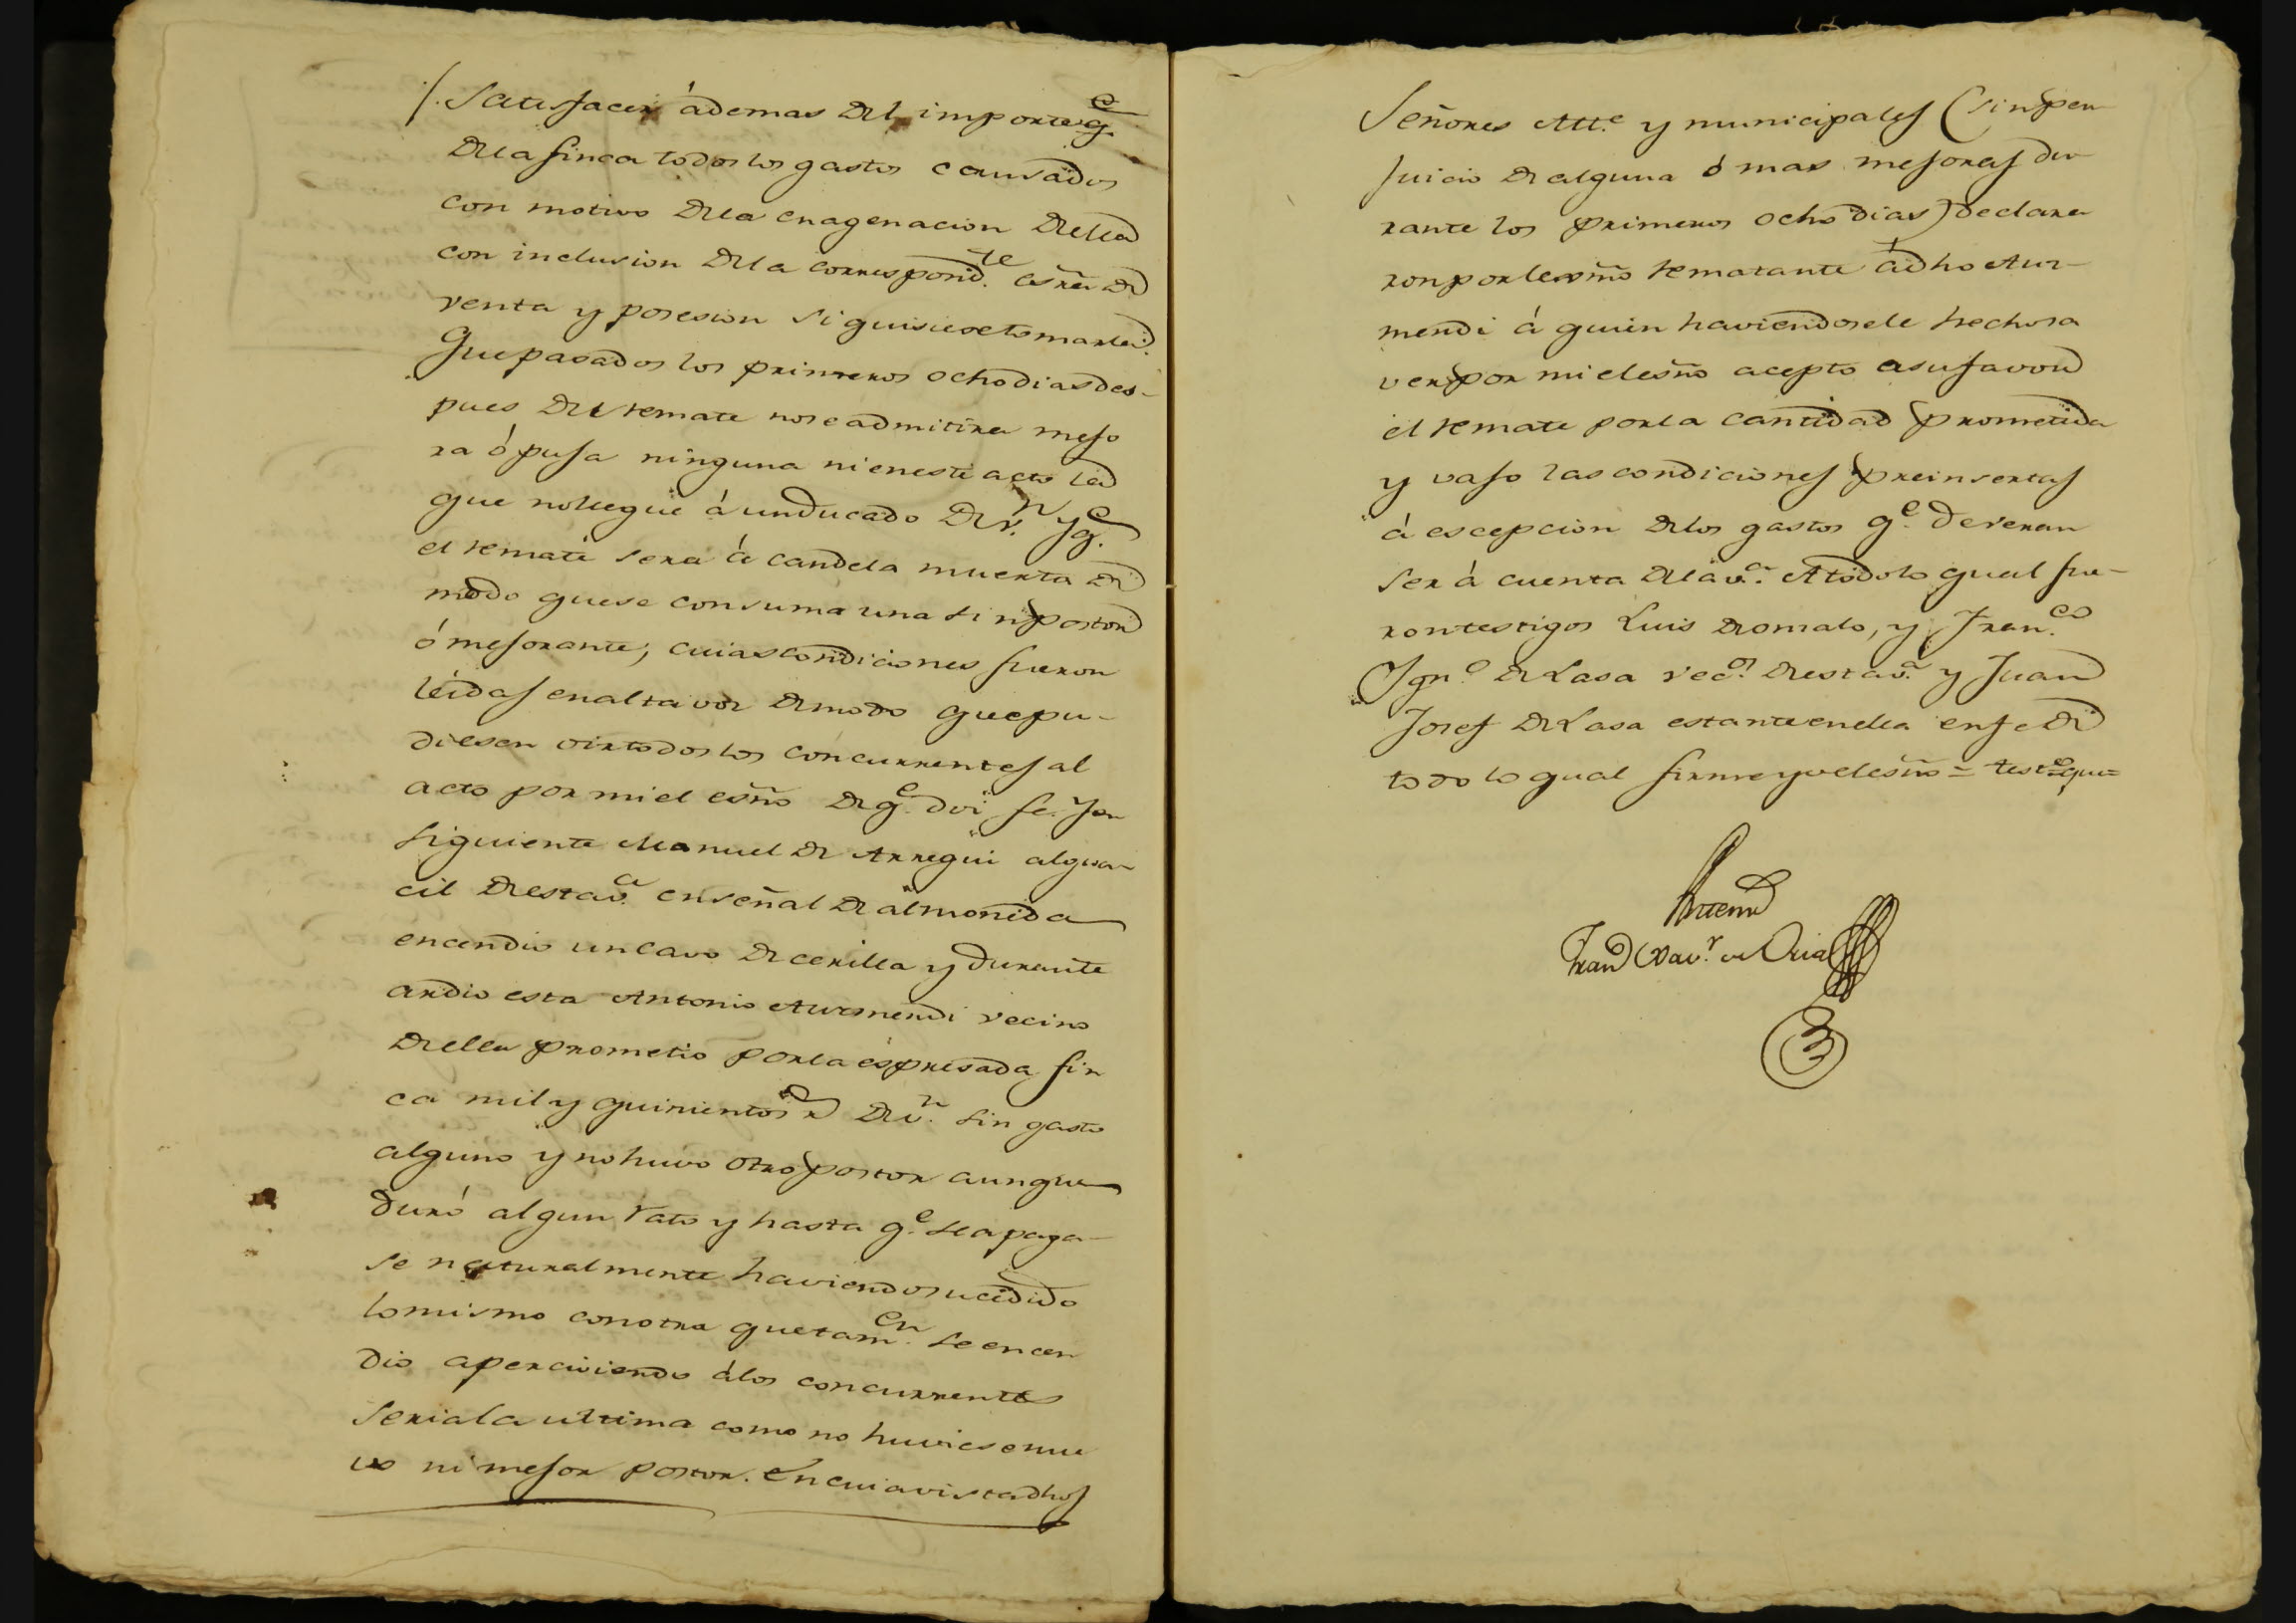 /. Satisfacer ademas del importe q.e
dela finca todos los gastos causados
con motivo dela enagenacion della
con inclusion dela correspond.te esra de
venta y posesion si quisiese tomarla.
Que pasados los primeros ocho dias des-
pues del remate nose admitira mejo
ra ó puja ninguna ni eneste acto la
que nollegue á unducado de v.n Y q.e
el remate sera á candela muerta de
modo quese consuma una sin postor
ó mejorante; cuias condiciones fueron
leidas enalta voz demodo que pu-
diesen oir todos los concurrentes al
acto por mi el esño de q.e doi fe. Y con
siguiente Manuel de Arregui algua-
cil de esta v.a enseñal de almoneda
encendio uncavo de cerilla y durante
ardio esta Antonio Aurmendi vecino
de ella prometio porla espresada fin
ca mil y quinientos r.s de v.n sin gasto
alguno y no huvo otro postor aunque
duró algun rato y hasta q.e se apaga-
se naturalmente haviendo sucedido
lo mismo con otra que tam.en se encen
dio aperciviendo álos concurrentes
seria la ultima como no huviese nue
vo ni mejor postor. En cuia vista dhos
Señores Alt.e y municipales (sin per
juicio de alguna ó mas mejoras du
rante los primeros ocho dias) declara
ron por el esño rematante á dho Aur-
mendi á quien haviendosele hecho sa
ver por mi el esño acepto asu favor
el remate por la cantidad prometida
y vajo las condiciones preinsertas
á escepcion de los gastos q.e deveran
ser á cuenta dela v.a A todo lo qual fue-
ron testigos Luis de Omalo, y Fran.co
Ygn.o de Lasa vec.s de esta v.a y Juan
Josef de Lasa estante enella enfe de
todo lo qual firme yo el esño =
Antemi
Fran.co Xav.r de Oria